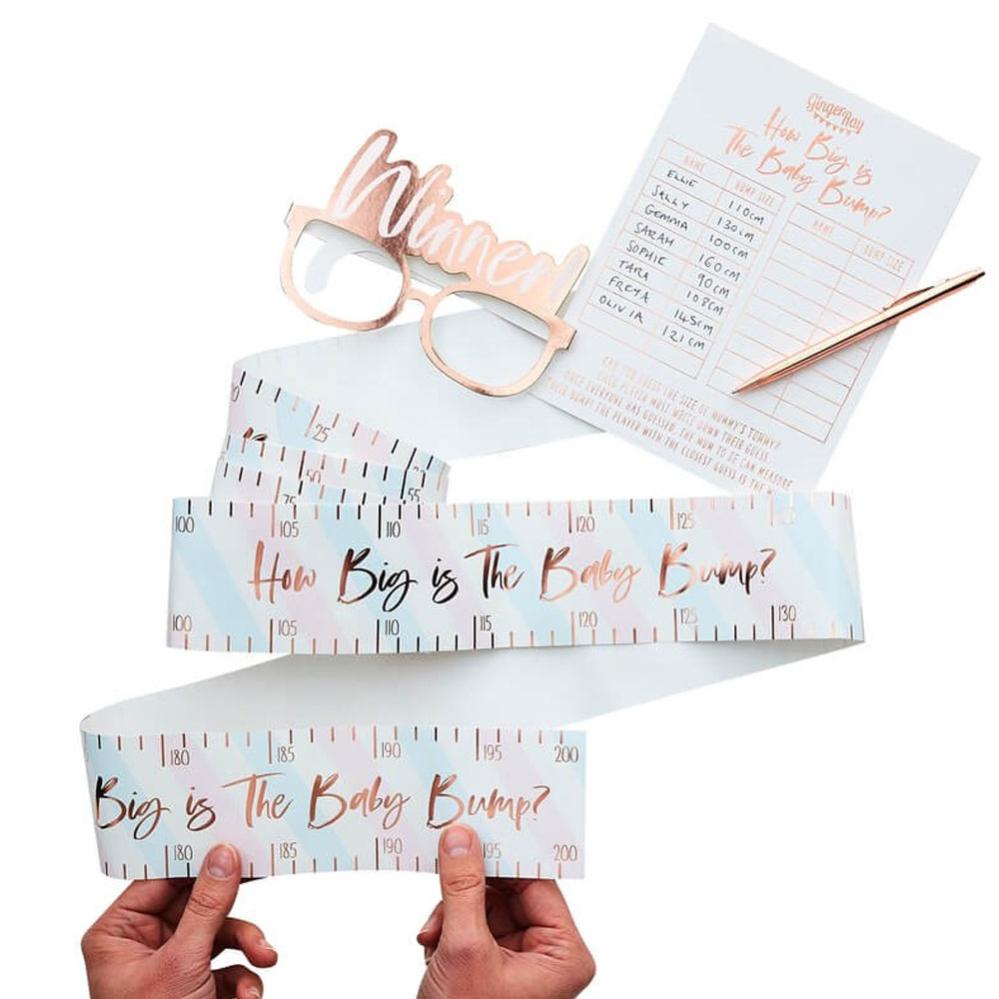 Winner
Ginger Ray
How Big is
The Baby Bump?
NAME BUMP SIZE NAME BUMP SIZE
ELLIE 110cm
SALLY 130cm
GEMMA 100cm
SARAH 160cm
SOPHIE 90cm
TARA 108cm
FREYA 145cm
OLIVIA 121cm
CAN YOU GUESS THE SIZE OF MUMMY'S TUMMY?
EACH PLAYER MUST WRITE DOWN THEIR GUESS.
ONCE EVERYONE HAS GUESSED, THE MUM TO BE CAN MEASURE
BUMP! THE PLAYER WITH THE CLOSEST GUESS IS THE
25
50
75 55
100 105 110 115 120 125
How Big is The Baby Bump?
100 105 110 115 120 125 130
180 185 190 195 200
Big is The Baby Bump?
180 185 190 195 200